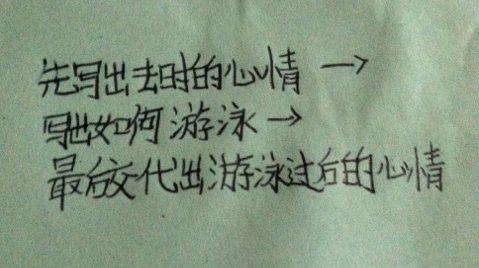 先写出去时的心情→
写出如何游泳→
最后交代出游泳过后的心情